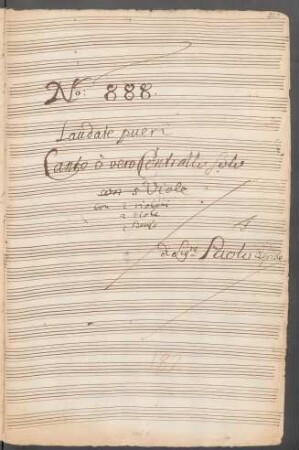 No: 888.
Laudate pueri
Canto ò vero Contralto solo
con 5 Viole
con 2 violini
2 viole
1 Basso
di Sigre Paolo
187